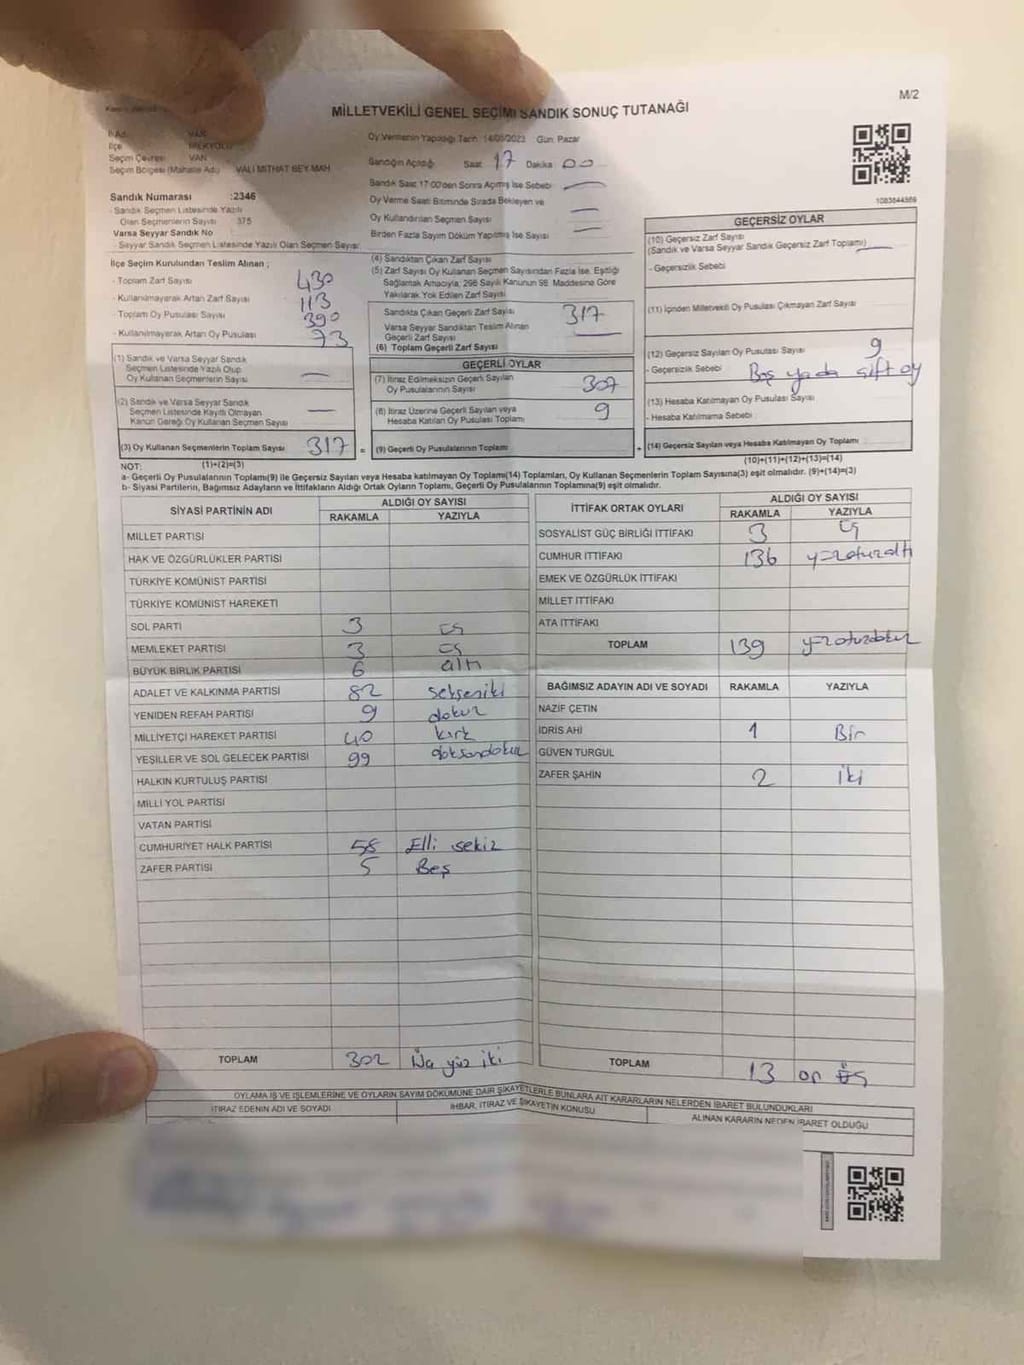 M/2
MİLLETVEKİLİ GENEL SEÇİMİ SANDIK SONUÇ TUTANAĞI
İl Adı : VAN
İlçe
Seçim Çevresi : VAN
Seçim Bölgesi (Mahalle Adı) : VALİ MİTHAT BEY MAH
Sandık Numarası :2346
- Sandık Seçmen Listesinde Yazılı
Olan Seçmenlerin Sayısı : 375
Varsa Seyyar Sandık No
- Seyyar Sandık Seçmen Listesinde Yazılı Olan Seçmen Sayısı:
Oy Vermenin Yapıldığı Tarih :14/05/2023 Gün: Pazar
Sandığın Açıldığı Saat 17 Dakika 00
Sandık Saat 17:00'den Sonra Açılmış İse Sebebi —
Oy Verme Saati Bitiminde Sırada Bekleyen ve
Oy Kullandırılan Seçmen Sayısı —
Birden Fazla Sayım Döküm Yapılmış İse Sayısı —
1083844369
İlçe Seçim Kurulundan Teslim Alınan ;
- Toplam Zarf Sayısı 430
- Kullanılmayarak Artan Zarf Sayısı 113
- Toplam Oy Pusulası Sayısı 390
- Kullanılmayarak Artan Oy Pusulası 73
(1) Sandık ve Varsa Seyyar Sandık
Seçmen Listesinde Yazılı Olup
Oy Kullanan Seçmenlerin Sayısı —
(2) Sandık ve Varsa Seyyar Sandık
Seçmen Listesinde Kayıtlı Olmayan
Kanun Gereği Oy Kullanan Seçmen Sayısı —
(3) Oy Kullanan Seçmenlerin Toplam Sayısı 317 =
(1)+(2)=(3)
(4) Sandıktan Çıkan Zarf Sayısı
(5) Zarf Sayısı Oy Kullanan Seçmen Sayısından Fazla İse, Eşitliği
Sağlamak Amacıyla; 298 Sayılı Kanunun 98. Maddesine Göre
Yakılarak Yok Edilen Zarf Sayısı
Sandıkta Çıkan Geçerli Zarf Sayısı 317
Varsa Seyyar Sandıktan Teslim Alınan
Geçerli Zarf Sayısı —
(6) Toplam Geçerli Zarf Sayısı
GEÇERLİ OYLAR
(7) İtiraz Edilmeksizin Geçerli Sayılan
Oy Pusulalarının Sayısı 307
(8) İtiraz Üzerine Geçerli Sayılan veya
Hesaba Katılan Oy Pusulası Toplamı 9
(9) Geçerli Oy Pusulalarının Toplamı +
GEÇERSİZ OYLAR
(10) Geçersiz Zarf Sayısı
(Sandık ve Varsa Seyyar Sandık Geçersiz Zarf Toplamı) —
- Geçersizlik Sebebi
(11) İçinden Milletvekili Oy Pusulası Çıkmayan Zarf Sayısı
(12) Geçersiz Sayılan Oy Pusulası Sayısı 9
- Geçersizlik Sebebi Boş ya da çift oy
(13) Hesaba Katılmayan Oy Pusulası Sayısı
- Hesaba Katılmama Sebebi
(14) Geçersiz Sayılan veya Hesaba Katılmayan Oy Toplamı
(10)+(11)+(12)+(13)=(14)
NOT:
a- Geçerli Oy Pusulalarının Toplamı(9) ile Geçersiz Sayılan veya Hesaba katılmayan Oy Toplamı(14) Toplamları, Oy Kullanan Seçmenlerin Toplam Sayısına(3) eşit olmalıdır. (9)+(14)=(3)
b- Siyasi Partilerin, Bağımsız Adayların ve İttifakların Aldığı Ortak Oyların Toplamı, Geçerli Oy Pusulalarının Toplamına(9) eşit olmalıdır.
SİYASİ PARTİNİN ADI
ALDIĞI OY SAYISI
RAKAMLA YAZIYLA
MİLLET PARTİSİ
HAK VE ÖZGÜRLÜKLER PARTİSİ
TÜRKİYE KOMÜNİST PARTİSİ
TÜRKİYE KOMÜNİST HAREKETİ
SOL PARTİ 3 üç
MEMLEKET PARTİSİ 3 üç
BÜYÜK BİRLİK PARTİSİ 6 altı
ADALET VE KALKINMA PARTİSİ 82 sekseniki
YENİDEN REFAH PARTİSİ 9 dokuz
MİLLİYETÇİ HAREKET PARTİSİ 40 kırk
YEŞİLLER VE SOL GELECEK PARTİSİ 99 doksandokuz
HALKIN KURTULUŞ PARTİSİ
MİLLİ YOL PARTİSİ
VATAN PARTİSİ
CUMHURİYET HALK PARTİSİ 58 Elli sekiz
ZAFER PARTİSİ 5 Beş
TOPLAM 302 Üç yüz iki
İTTİFAK ORTAK OYLARI
ALDIĞI OY SAYISI
RAKAMLA YAZIYLA
SOSYALİST GÜÇ BİRLİĞİ İTTİFAKI 3 üç
CUMHUR İTTİFAKI 136 yüzotuzaltı
EMEK VE ÖZGÜRLÜK İTTİFAKI
MİLLET İTTİFAKI
ATA İTTİFAKI
TOPLAM 139 yüzotuzdokuz
BAĞIMSIZ ADAYIN ADI VE SOYADI RAKAMLA YAZIYLA
NAZİF ÇETİN
İDRİS AHİ 1 Bir
GÜVEN TURGUL
ZAFER ŞAHİN 2 iki
TOPLAM 13 on üç
OYLAMA İŞ VE İŞLEMLERİNE VE OYLARIN SAYIM DÖKÜMÜNE DAİR ŞİKAYETLERLE BUNLARA AİT KARARLARIN NELERDEN İBARET BULUNDUKLARI
İTİRAZ EDENİN ADI VE SOYADI
İHBAR, İTİRAZ VE ŞİKAYETİN KONUSU
ALINAN KARARIN NEDEN İBARET OLDUĞU